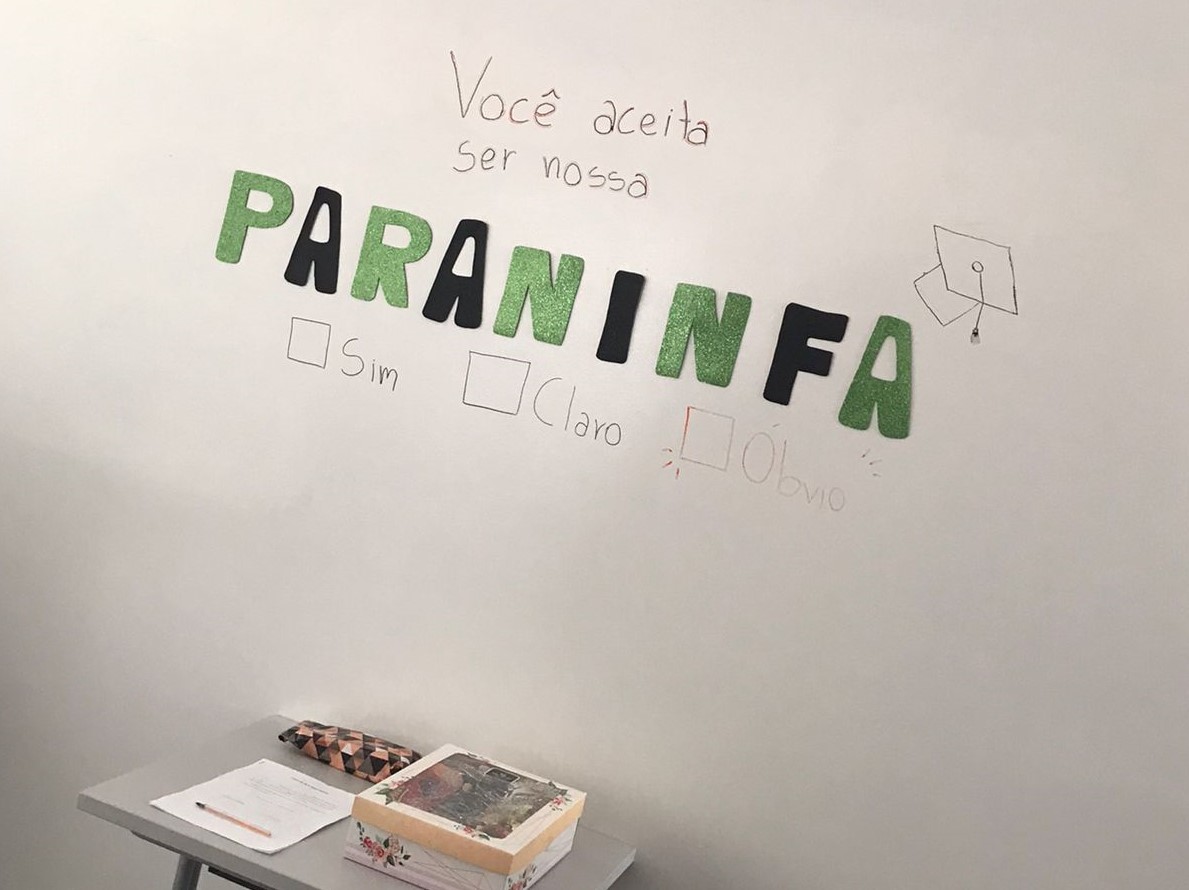 Você aceita
ser nossa
PARANINFA
Sim Claro Óbvio